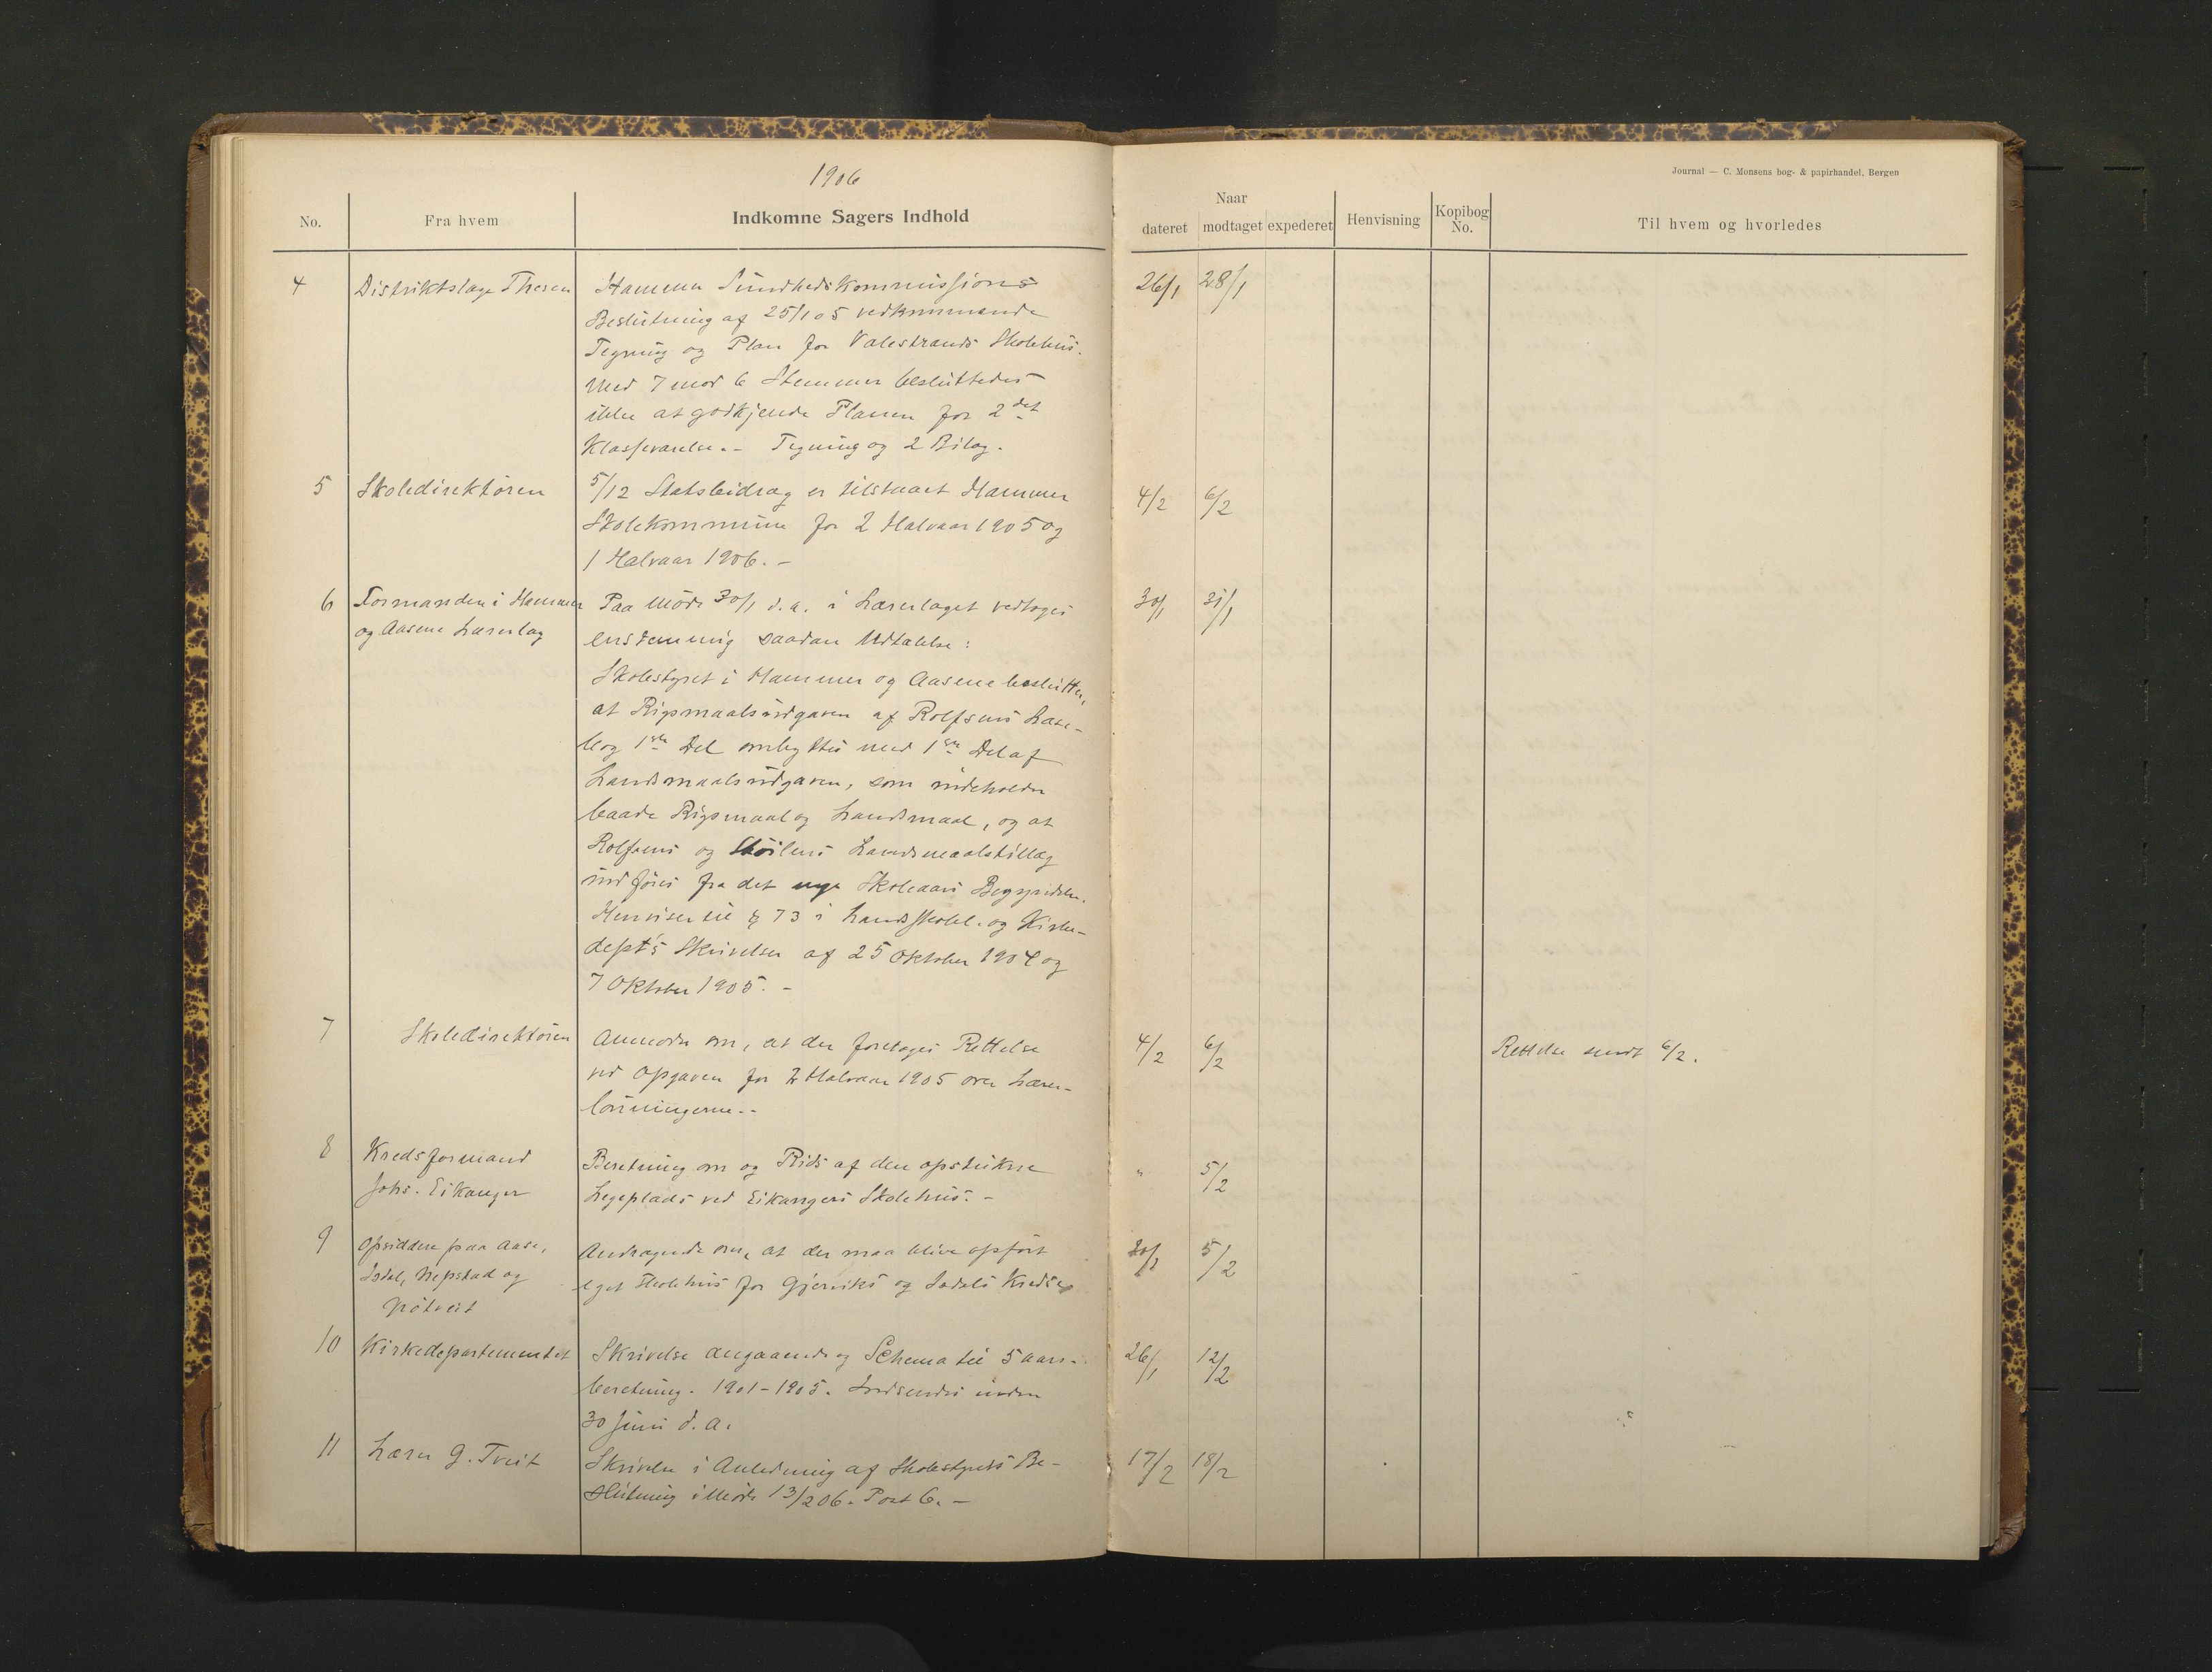 1906
Journal — C. Monsens bog- & papirhandel, Bergen
No. Fra hvem Indkomne Sagers Indhold
Naar
dateret modtaget expederet Henvisning Kopibog No. Til hvem og hvorledes
4 Distriktslæge Thesen Hammer Sundhedskommissions 26/1 28/1
Beslutning af 25/1 05 vedkommende
Tegning og Plan for Valestrands Skolehus.
Med 7 mod 6 Stemmer besluttedes
ikke at godkjende Planen for 2det
Klasseværelse. - Tegning og 2 Bilag.
5 Skoledirektøren 5/12 Statsbidrag er tilstaaet Hammer 4/2 6/2
Skolekommune for 2 Halvaar 1905 og
1 Halvaar 1906. -
6 Formanden i Hammer Paa Møde 30/1 d.a. i Lærerlaget vedtoges 30/1 31/1
og Aasene Lærerlag enstemmig saadan Udtalelse:
Skolestyret i Hammer og Aasene beslutter,
at Rigsmaalsudgaven af Rolfsens Læse-
bog 1ste Del ombyttes med 1ste Del af
Landsmaalsudgaven, som indeholder
baade Rigsmaal og Landsmaal, og at
Rolfsens og Støilens Landsmaalstillæg
indføres fra det nye Skoleaars Begyndelse.
Henviser til § 73 i Landsskolel. og Kirke-
dept's Skrivelser af 25 Oktober 1904 og
7 Oktober 1905. -
7 Skoledirektøren Anmoder om, at der foretages Rettelse 4/2 6/2 Rettelse sendt 6/2.
ved Opgaven for 2 Halvaar 1905 over Lærer-
lønningerne. -
8 Kredsformand Beretning om og Rids af den opstukne " 5/2
Johs. Eikanger Legeplads ved Eikangers Skolehus. -
9 Opsiddere paa Aase, Andragende om, at der maa blive opført 30/1 5/2
Isdal, Nepstad og eget Skolehus for Gjerviks og Isdals Kredse
Nøtveit
10 Kirkedepartementet Skrivelse angaaende og Schema til 5 aars- 26/1 12/2
beretning. 1901-1905. Indsendes inden
30 Juni d.a.
11 Lærer G. Tveit Skrivelse i Anledning af Skolestyrets Be- 17/2 18/2
slutning i Møde 13/2 06. Post 6. -